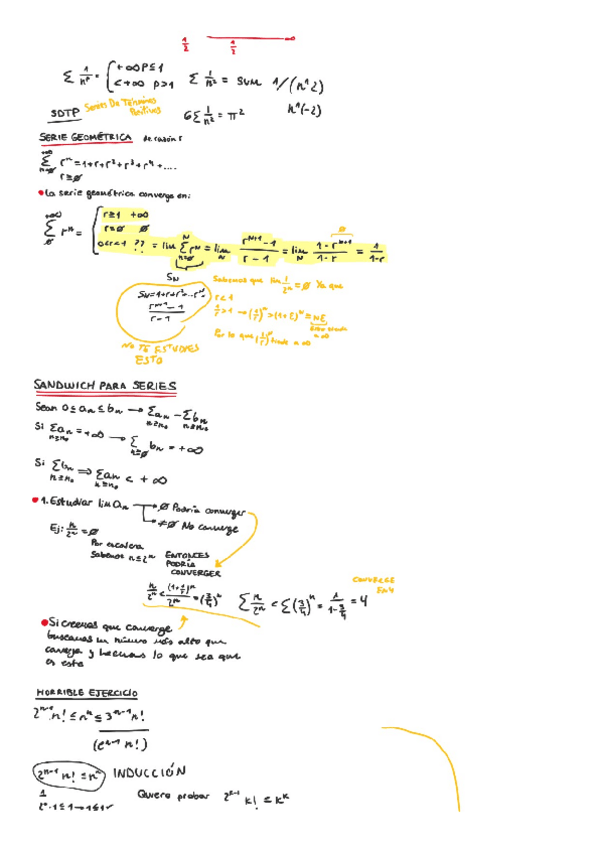 1/2
1/2
Σ 1/n^p = { +∞ P≤1
< +∞ P>1
Σ 1/n² = SUM 1/(n^2)
n^(-2)
SDTP
Series De Términos Positivos
6Σ 1/n² = π²
SERIE GEOMÉTRICA de razón r
+∞ Σ n=0 rⁿ = 1+r+r²+r³+r⁴+....
r≥0
La serie geométrica converge en:
+∞ Σ 0 rⁿ = { r≥1 +∞
r=0 0
0<r<1 ?? = lim N Σ n=0 rⁿ = lim N (r^(N+1) -1)/(r-1) = lim N (1-r^(N+1))/(1-r) = 1/(1-r)
0
S_N
S_N=1+r+r²+...r^N=
(r^(N+1) -1)/(r-1)
NO TE ESTUDIES
ESTO
Sabemos que lim 1/2ⁿ = 0 Ya que
r<1
1/r >1 → (1/r)ⁿ > (1+ε)ⁿ = nε
Por lo que (1/r)ⁿ tiende a ∞
SANDWICH PARA SERIES
Sean 0≤aₙ≤bₙ → Σaₙ n≥n₀ - Σbₙ n≥n₀
Si Σaₙ n≥n₀ = +∞ → Σ n≥0 bₙ = +∞
Si Σbₙ n≥n₀ ⇒ Σaₙ n≥n₀ < +∞
1. Estudiar lim aₙ → 0 Podría converger
→ ≠0 No converge
Ej: n/2ⁿ = 0
Por escalera
Sabemos n≤2ⁿ
ENTONCES
PODRÍA
CONVERGER
n/2ⁿ < (1+1/2)ⁿ/2ⁿ = (3/4)ⁿ
Σ n/2ⁿ < Σ(3/4)ⁿ = 1/(1-3/4) = 4
CONVERGE
EN 4
Si creemos que converge
buscamos un número más alto que
converja y hacemos lo que sea que
es esto
HORRIBLE EJERCICIO
2ⁿ⁻¹ n! ≤ nⁿ ≤ 3ⁿ⁻¹ n!
(eⁿ⁻¹ n!)
2ⁿ⁻¹ n! ≤ nⁿ INDUCCIÓN
1
2⁰·1≤1→1≤1✓
Quiero probar 2ᵏ⁻¹ k! ≤ kᵏ